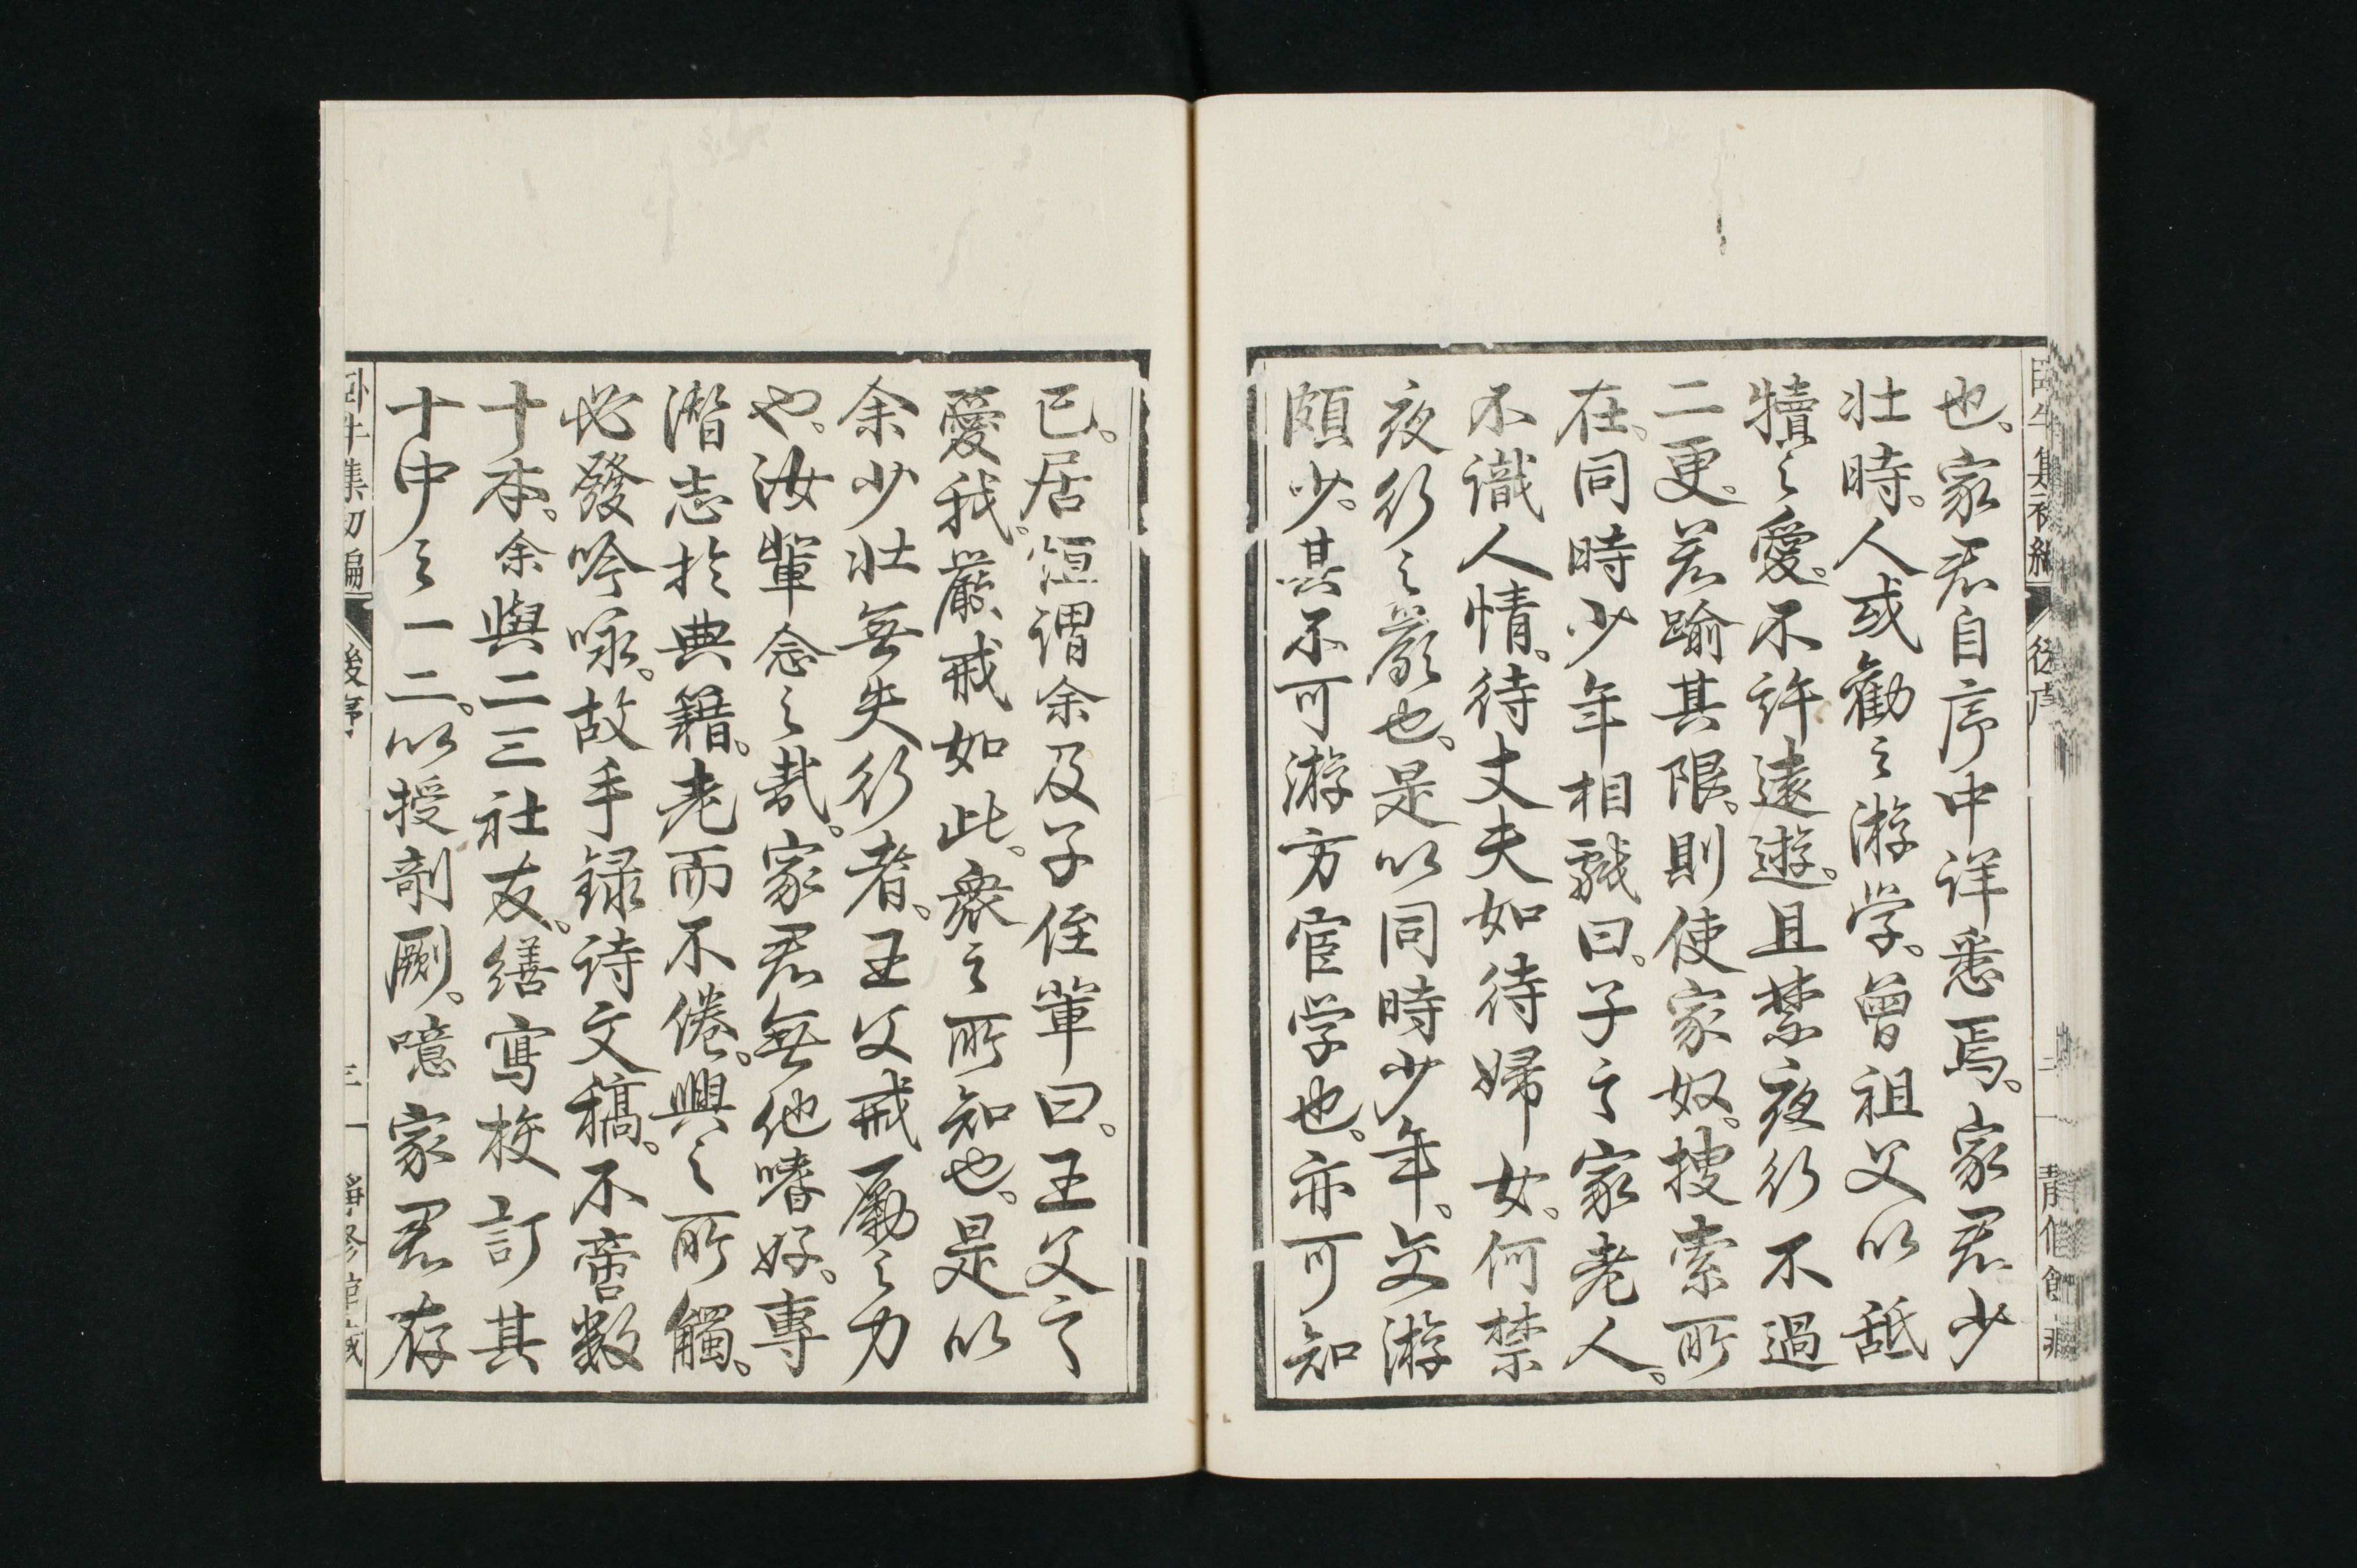 也。家君自序中详悉焉。家君少
壮時。人或勸之游学。曾祖父以舐
犢之愛。不許遠遊。且禁夜行不過
二更。若踰其限。則使家奴。搜索所
在。同時少年相戲曰。子之家老人。
不識人情。待丈夫如待婦女。何禁
夜行之嚴也。是以同時少年。交游
頗少。其不可游方宦学也。亦可知
已。居恒謂余及子侄輩曰。王父之
愛我。嚴戒如此。衆之所知也。是以
余少壮無失行者。王父戒勵之力
也。汝輩念之哉。家君無他嗜好。專
潛志於典籍。老而不倦。興之所觸。
必發吟咏。故手録诗文稿。不啻数
十本。余與二三社友。繕寫校訂其
十中之一二。以授剞劂。噫家君存
臥牛集初編 後序 三 靜修館藏